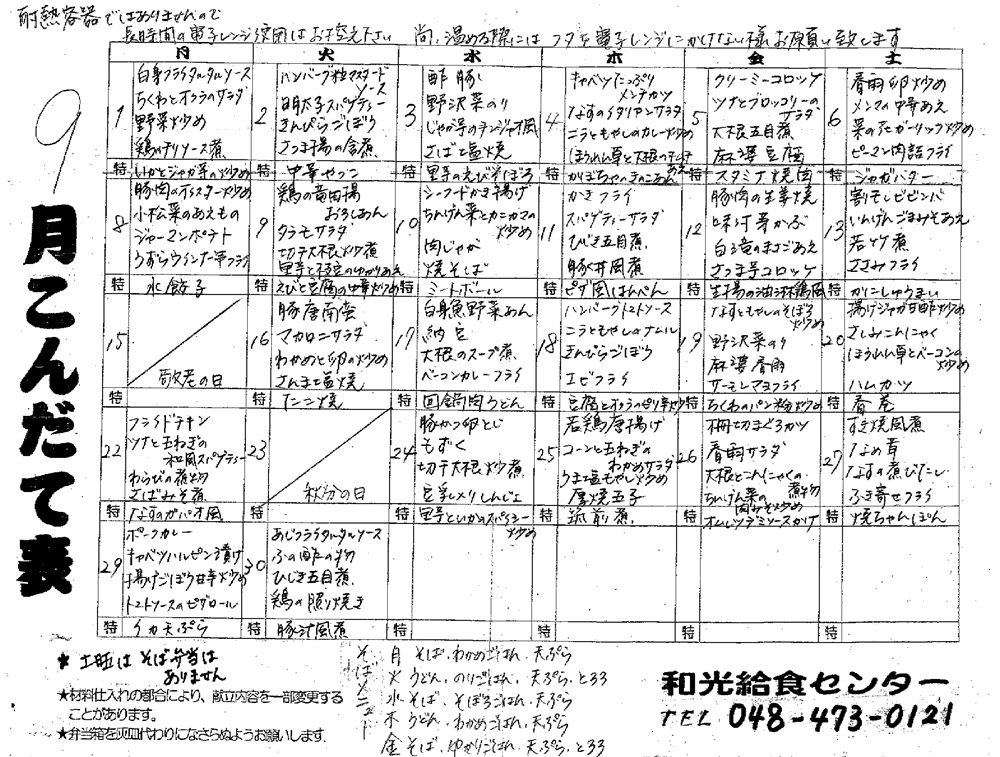 耐熱容器ではありませんので
長時間の電子レンジ使用はお控え下さい 尚、温める際にはフタを電子レンジにかけない様お願い致します
9月こんだて表
月 火 水 木 金 土
1
白身フライタルタルソース
ちくわとオクラのサラダ
野菜炒め
鶏チリソース煮
特 いかとジャガ芋の炒め
2
ハンバーグ粒マスタード
ソース
明太子スパゲティー
きんぴらごぼう
さつま揚の含煮
特 中華やっこ
3
酢豚
野沢菜のり
じゃが芋のチンジャオ風
さば塩焼
特 里芋のえびそぼろ
4
キャベツたっぷり
メンチカツ
なすのイタリアンサラダ
ニラともやしのカレー炒め
ほうれん草と大根の
特 かぼちゃのきのこあん
5
クリーミーコロッケ
ツナとブロッコリーの
サラダ
大根五目煮
麻婆豆腐
特 スタミナ焼肉
6
春雨卵炒め
メンマの中華あえ
菜の花ガーリック炒め
ピーマン肉詰フライ
特 ジャガバター
8
豚肉のオイスター炒め
小松菜のあえもの
ジャーマンポテト
うずらウインナー串フライ
特 水餃子
9
鶏の竜田揚
おろしあん
タラモサラダ
切干大根炒煮
里芋と枝豆のゆかりあえ
特 えびと豆腐の中華炒め
10
シーフードかき揚げ
ちんげん菜とカニカマの
炒め
肉じゃが
焼そば
特 ミートボール
11
かきフライ
スパゲティーサラダ
ひじき五目煮
豚丼風煮
特 ピザ風はんぺん
12
豚肉の生姜焼
味付寿かぶ
白滝のまさごあえ
さつま芋コロッケ
特 生揚の油淋鶏風
13
割干しビビンバ
いんげんごまみそあえ
若竹煮
ささみフライ
特 かにしゅうまい
15
敬老の日
特
16
豚唐南蛮
マカロニサラダ
わかめと卵の炒め
さんま塩焼
特 たこ焼
17
白身魚野菜あん
納豆
大根のスープ煮
ベーコンカレーフライ
特 回鍋肉うどん
18
ハンバーグトマトソース
ニラともやしのナムル
きんぴらごぼう
エビフライ
特 豆腐とオクラの
19
なすともやしのそぼろ
炒め
野沢菜のり
麻婆春雨
サーモンマヨフライ
特 ちくわのパン粉炒め
20
揚げジャガ甘酢炒め
さしみこんにゃく
ほうれん草とベーコンの
炒め
ハムカツ
特 春巻
22
フライドチキン
ツナと玉ねぎの
和風スパゲティー
わらびの煮物
さばみそ煮
特 なすのガパオ風
23
秋分の日
特
24
豚かつ卵とじ
もずく
切干大根炒煮
豆乳入りしんじょ
特 里芋といかのスパイシー
炒め
25
若鶏唐揚げ
コーンと玉ねぎの
わかめサラダ
うま塩もやし炒め
厚焼玉子
特 筑前煮
26
柵切まぐろカツ
春雨サラダ
大根とこんにゃくの
煮物
ちんげん菜の
肉みそ炒め
特 オムレツデミソースかけ
27
すき焼風煮
なめ茸
なすの煮びたし
ふき寄せフライ
特 焼ちゃんぽん
29
ポークカレー
キャベツハルピン漬け
揚げごぼう甘辛炒め
トマトソースのピザロール
特 イカ天ぷら
30
あじフライタルタルソース
ふの酢の物
ひじき五目煮
鶏の照り焼き
特 豚汁風煮
特 特 特 特
* 土曜はそば弁当は
ありません
★材料仕入れの都合により、献立内容を一部変更する
ことがあります。
★弁当箱を灰皿代わりになさらぬようお願いします。
そばメニュー
月 そば、わかめごはん、天ぷら
火 うどん、のりごはん、天ぷら、とろろ
水 そば、そぼろごはん、天ぷら
木 うどん、わかめごはん、天ぷら
金 そば、ゆかりごはん、天ぷら、とろろ
和光給食センター
TEL 048-473-0121